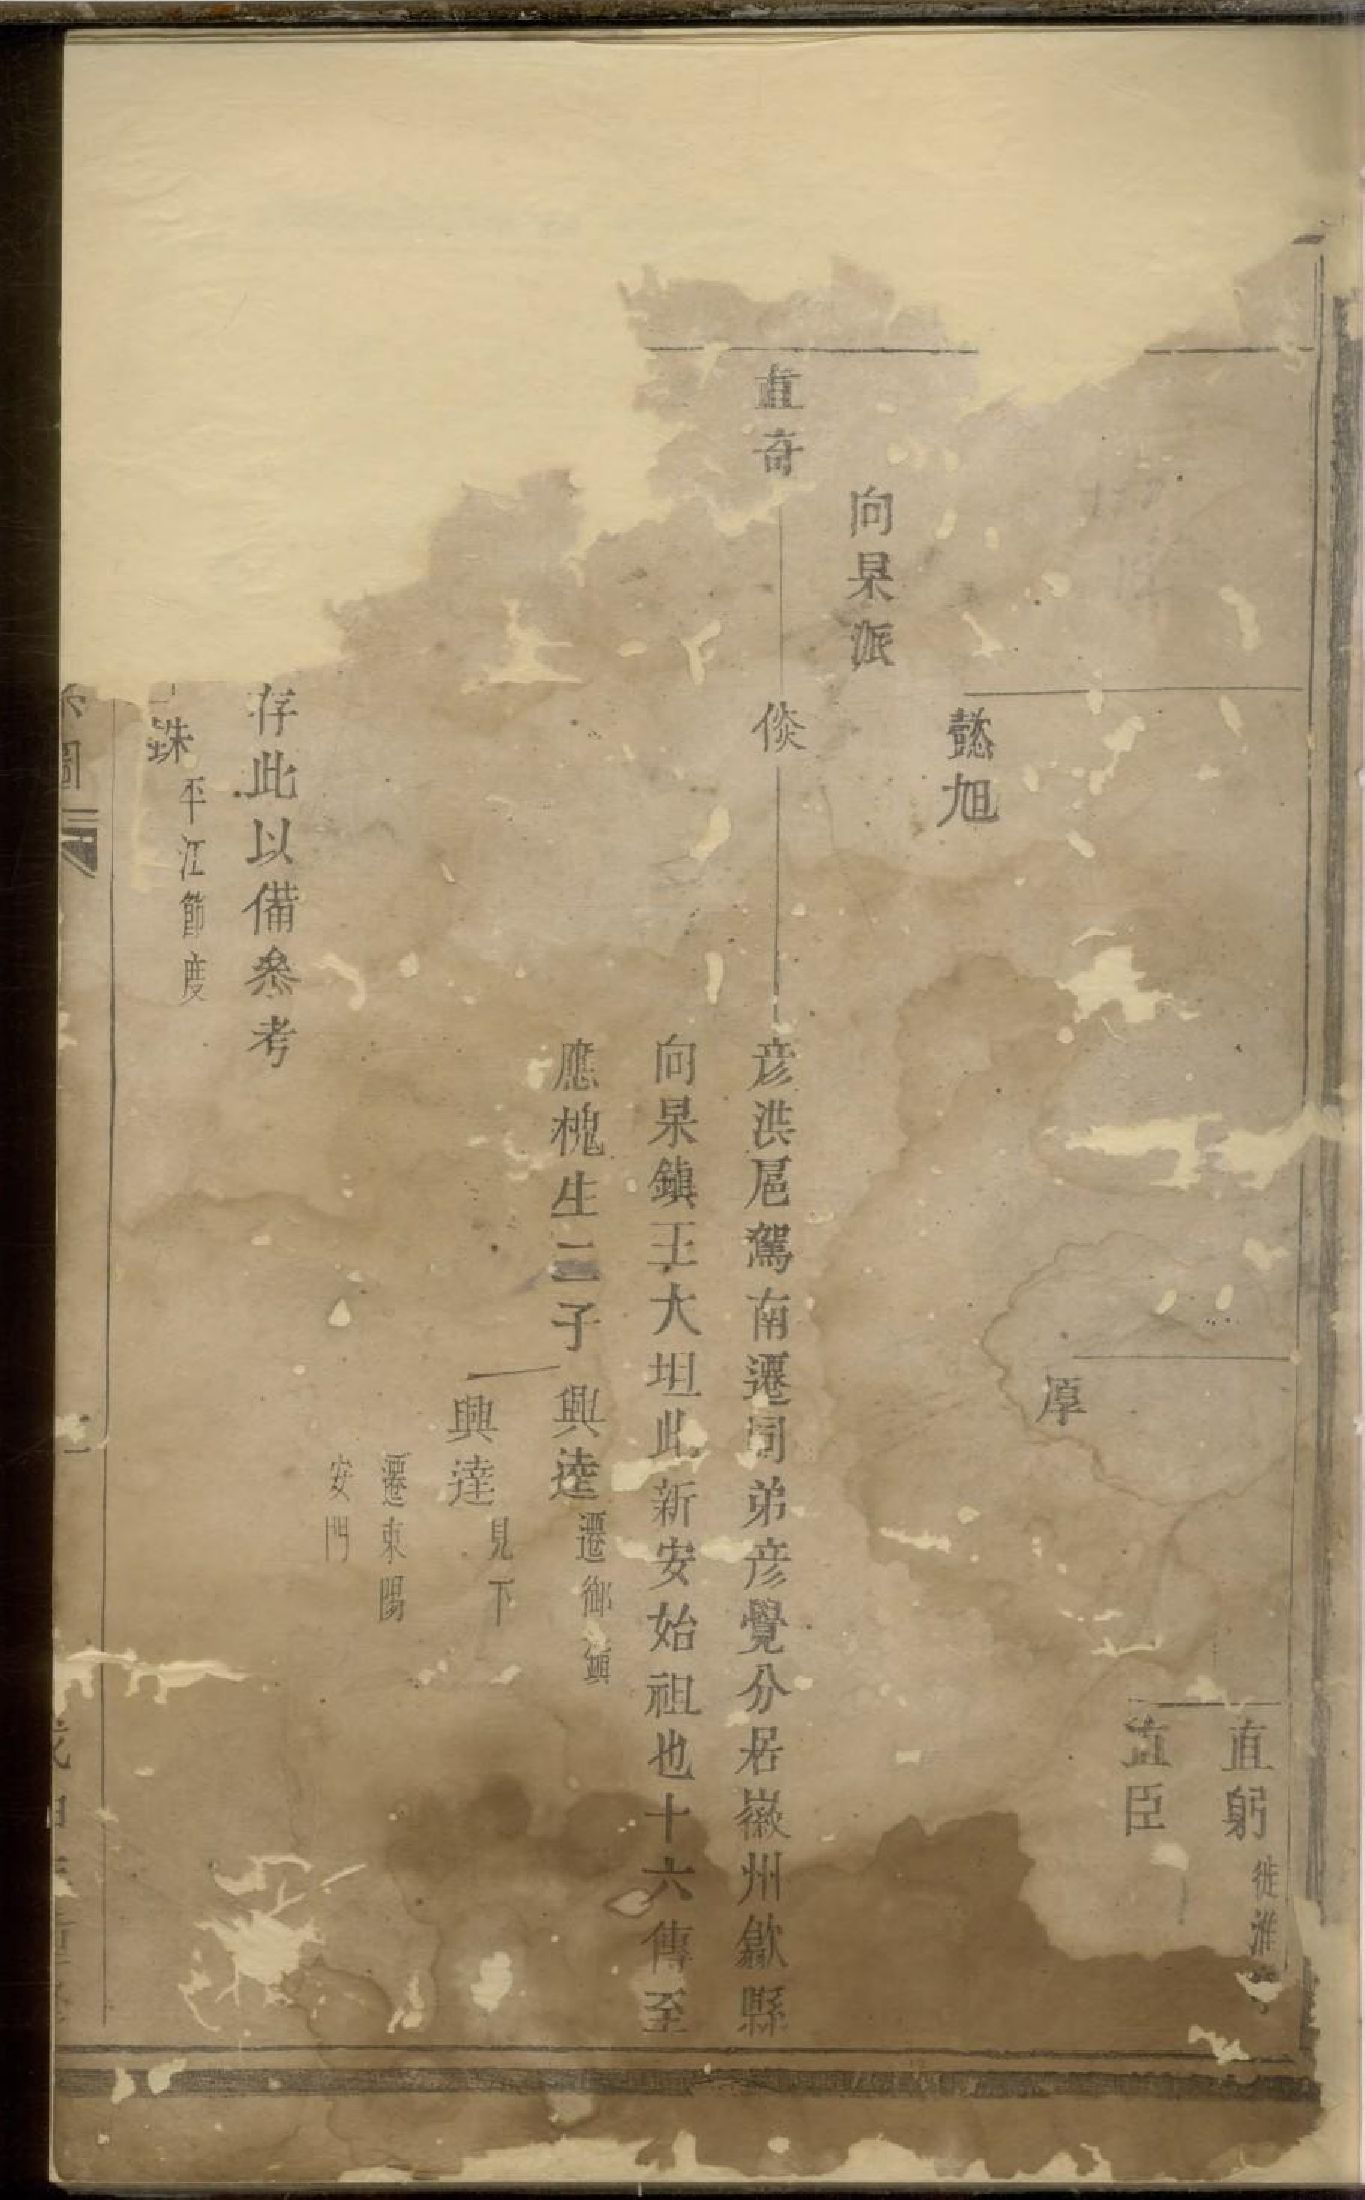 直躬 徙淮
直臣
厚
懿旭
向杲派
直奇
倓
彦洪扈駕南遷同弟彦覺分居徽州歙縣
向杲鎮王大坦此新安始祖也十六傳至
應槐生二子
興逵 遷御鎮
興達 見下
遷東陽
安門
存此以備叅考
銖 平江節度
圖